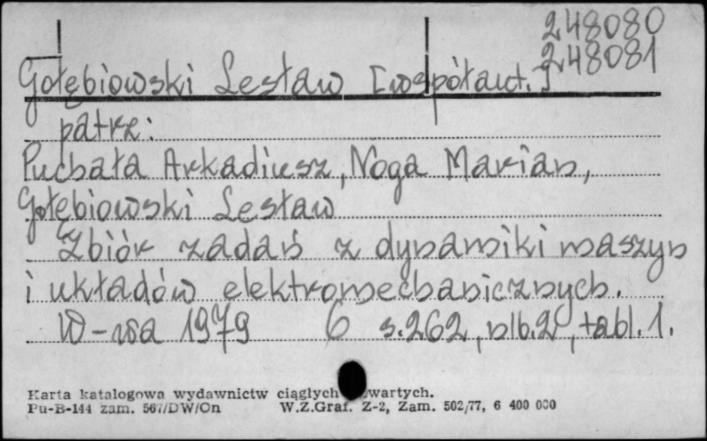 248080
248081
Gołębiowski Lesław [współaut.]
patrz:
Puchała Arkadiusz, Noga Marian,
Gołębiowski Lesław
Zbiór zadań z dynamiki maszyn
i układów elektromechanicznych.
W-wa 1979 6 s.262, nlb.2, tabl.1.
Karta katalogowa wydawnictw ciągłych wartych.
Pu-B-144 zam. 567/DW/On W.Z.Graf. Z-2, Zam. 502/77, 6 400 000